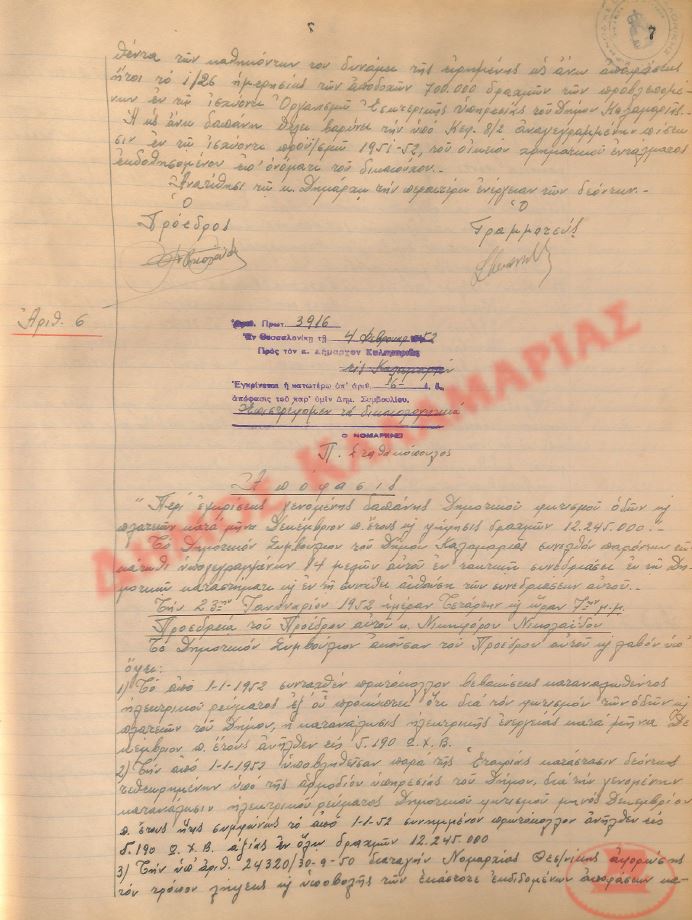 7
θέντα τῶν καθηκόντων του δυνάμει τῆς εἰρημένης ὡς ἄνω ἀποφάσεως
ἤτοι τὸ 1/25 ἡμερησίως τῶν ἀποδοχῶν 700.000 δραχμῶν τῶν προβλεπομέ-
νων ἐν τῷ ἰσχύοντι Ὀργανισμῷ Ἐσωτερικῆς ὑπηρεσίας τοῦ Δήμου Καλαμαριᾶς.-
Ἡ ὡς ἄνω δαπάνη θέλει βαρύνει τὴν ὑπὸ Κεφ. 8/2 ἀναγεγραμμένην πίστω-
σιν ἐν τῷ ἰσχύοντι προϋ/σμῷ 1951-52, τοῦ οἰκείου χρηματικοῦ ἐντάλματος
ἐκδοθησομένου ἐπ' ὀνόματι τοῦ δικαιούχου.-
Ἀνατίθησι τῷ κ. Δημάρχῳ τὴν περαιτέρω ἐνέργειαν τῶν δεόντων.-
Ὁ Ὁ
Πρόεδρος Γραμματεύς
Ἀριθ. 6
Ἀριθ. Πρωτ. 3916
Ἐν Θεσσαλονίκῃ τῇ 4 Φεβρουαρ 1952
Πρὸς τὸν κ. Δήμαρχον Καλαμαριᾶς
εἰς Καλαμαριάν
Ἐγκρίνεται ἡ κατωτέρω ὑπ' ἀριθ. 6 ἔ. ἔ.
ἀπόφασις τοῦ παρ' ὑμῖν Δημ. Συμβουλίου.
Ἐπιστρέφομεν τὰ δικαιολογητικά
Ο ΝΟΜΑΡΧΗΣ
Π. Σταθακόπουλος
ΔΗΜΟΣ ΚΑΛΑΜΑΡΙΑΣ
Ἀπόφασις
"Περὶ ἐγκρίσεως γενομένης δαπάνης Δημοτικοῦ φωτισμοῦ ὁδῶν κ̣
πλατειῶν κατὰ μῆνα Δεκέμβριον π. ἔτους κ̣ ψήφισις δραχμῶν 12.245.000.-
Τὸ Δημοτικὸν Συμβούλιον τοῦ Δήμου Καλαμαριᾶς συνελθὸν παρόντων τῶν
κάτωθι ὑπογεγραμμένων 14 μελῶν αὐτοῦ ἐν τακτικῇ συνεδριάσει ἐν τῷ Δη-
μοτικῷ καταστήματι κ̣ ἐν τῇ συνήθει αἰθούσῃ τῶν συνεδριάσεων αὐτοῦ.-
Τὴν 23ην Ἰανουαρίου 1952 ἡμέραν Τετάρτην κ̣ ὥραν 7ην μ.μ.
Προεδρείᾳ τοῦ Προέδρου αὐτοῦ κ. Νικηφόρου Νικολαΐδου
Τὸ Δημοτικὸν Συμβούλιον ἀκοῦσαν τοῦ Προέδρου αὐτοῦ κ̣ λαβὸν ὑπ'
ὄψει:
1) Τὸ ἀπὸ 1-1-1952 συνταχθὲν πρωτόκολλον βεβαιώσεως καταναλωθέντος
ἠλεκτρικοῦ ρεύματος ἐξ οὗ προκύπτει ὅτι διὰ τὸν φωτισμὸν τῶν ὁδῶν κ̣
πλατειῶν τοῦ Δήμου, ἡ κατανάλωσις ἠλεκτρικῆς ἐνεργείας κατὰ μῆνα Δε
κέμβριον π. ἔτους ἀνῆλθεν εἰς 5.190 Ω.Χ.Β.
2) Τὴν ἀπὸ 1-1-1952 ὑποβληθεῖσαν παρὰ τῆς Ἑταιρίας κατάστασιν δεόντως
τεθεωρημένην ὑπὸ τῆς ἁρμοδίου ὑπηρεσίας τοῦ Δήμου, διὰ τὴν γενομένην
κατανάλωσιν ἠλεκτρικοῦ ρεύματος Δημοτικοῦ φωτισμοῦ μηνὸς Δεκεμβρίου
π. ἔτους ἥτις συμφώνως τὸ ἀπὸ 1-1-52 συνημμένον πρωτόκολλον ἀνῆλθεν εἰς
5.190 Ω.Χ.Β. ἀξίας ἐν ὅλῳ δραχμῶν 12.245.000
3) Τὴν ὑπ' ἀριθ. 24320/30-9-50 διαταγὴν Νομαρχίας Θεσ/νίκης ἀφορώσης
τὸν τρόπον λήψεως κ̣ ὑποβολῆς τῶν ἑκάστοτε ἐκδιδομένων ἀποφάσεων κα-